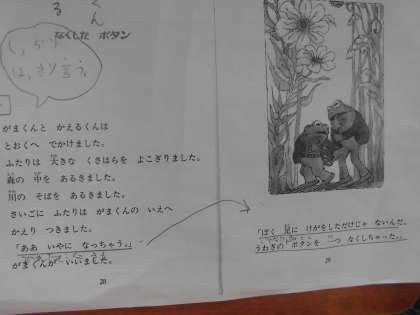 る
くん
なくした ボタン
しっかり
は、きり言う。
がまくんと かえるくんは
とおくへ でかけました。
ふたりは 大きな くさはらを よこぎりました。
森の 中を あるきました。
川の そばを あるきました。
さいごに ふたりは がまくんの いえへ
かえり つきました。
「ああ いやに なっちゃう。」
がまくんが いいました。
20
「ぼく 足に けがをしただけじゃ ないんだ。
うわぎの ボタンを 一つ なくしちゃった。」